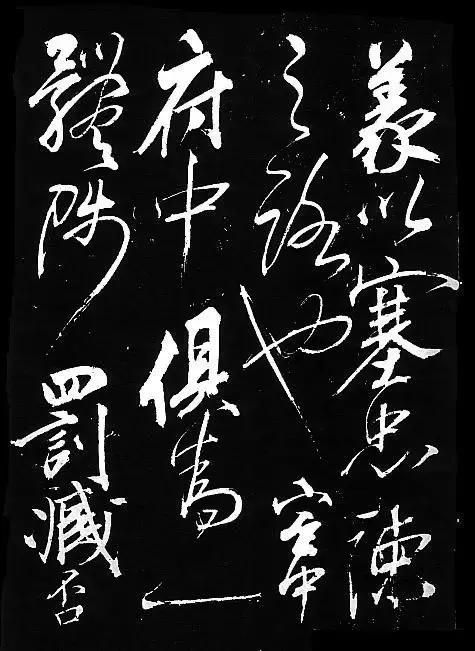 義以塞忠諫
之路也宮中
府中俱為一
體陟罰臧否